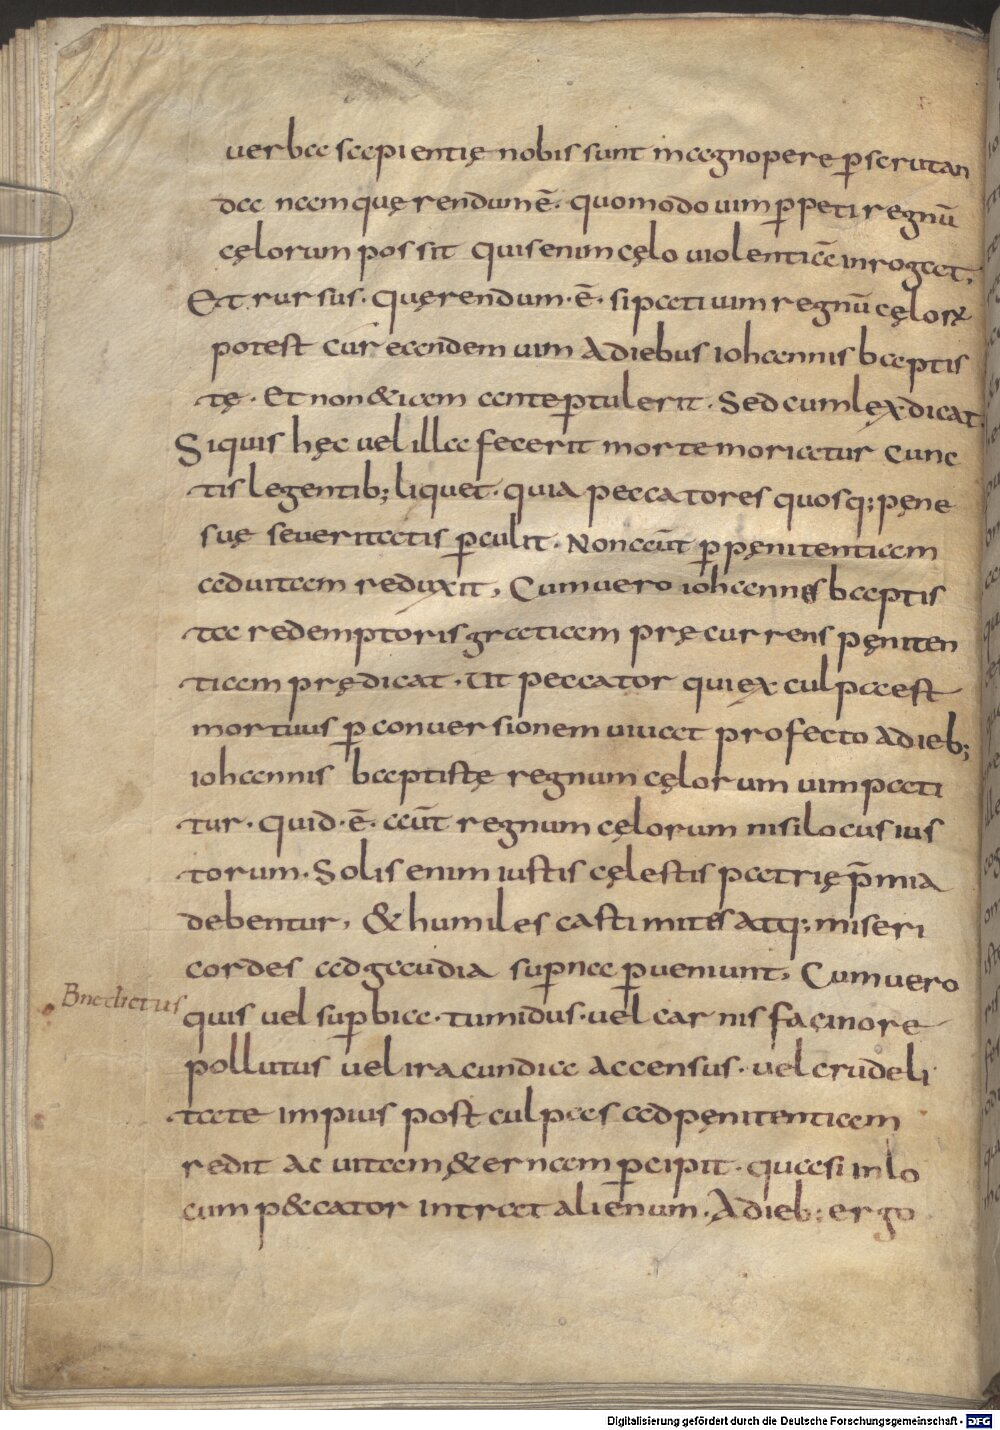 uerba sapientię nobis sunt magnopere ꝑscrutan
da nam quęrendum ē. quomodo uim ꝑpeti regnū
cęlorum possit quis enim cęlo uiolentiā inroget,
Et rursus. Quęrendum. ē. si pati uim regnū cęloꝝ
potest cur eandem uim Adiebus iohannis baptis
tę. Et non &iam anteꝑtulerit. Sed cum lex dicat
Siquis hęc uel illa fecerit morte moriatur Cunc
tis legentib; liquet. quia peccatores quosq; pęne
suę seueritatis ꝑculit. Non aūt ꝑ pęnitentiam
aduitam reduxit, Cum uero iohannes baptis
ta redemptoris gratiam pręcurrens pęniten
tiam prędicat. Ut peccator qui ex culpa est
mortuus ꝑ conuersionem uiuat profecto Adieb;
iohannis baptistę regnum cęlorum uim pati
tur. quid. ē. aūt regnum cęlorum nisi locus ius
torum. Solis enim iustis cęlestis patrię p̄mia
debentur, & humiles casti mites atq; miseri
cordes ad gaudia suꝑna ꝑueniunt, Cum uero
Bnedictus
quis uel suꝑbia. tumidus. uel carnis facinore
pollutus uel iracundia accensus. uel crudeli
tate impius post culpas ad pęnitentiam
redit ac uitam &ernam ꝑcipit. quasi in lo
cum p&cator intrat alienum. Adieb; ergo
Digitalisierung gefördert durch die Deutsche Forschungsgemeinschaft - DFG